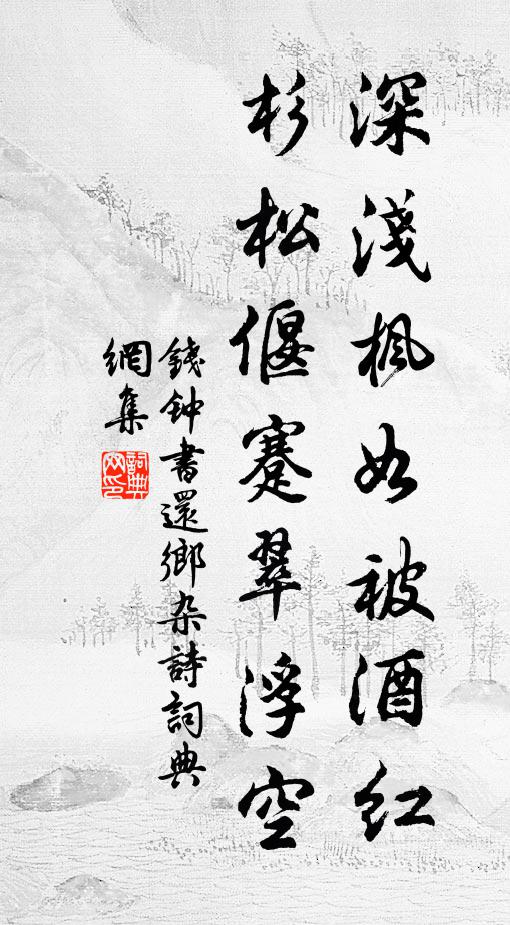 深淺枫如被酒红
杉松偃蹇翠浮空
錢钟書還鄉杂詩詞典
網集
詞典
网印